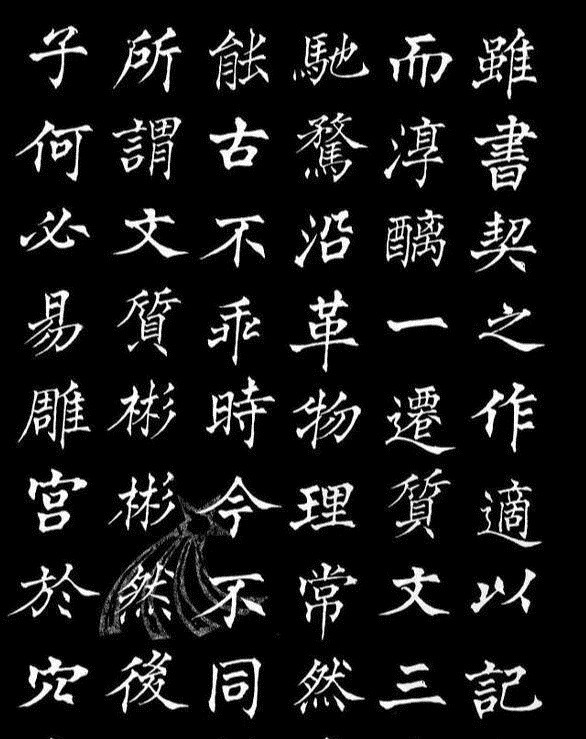 雖書契之作適以記
而淳醨一遷質文三
馳騖沿革物理常然
能古不乖時今不同
所謂文質彬彬然後
子何必易雕宮於穴